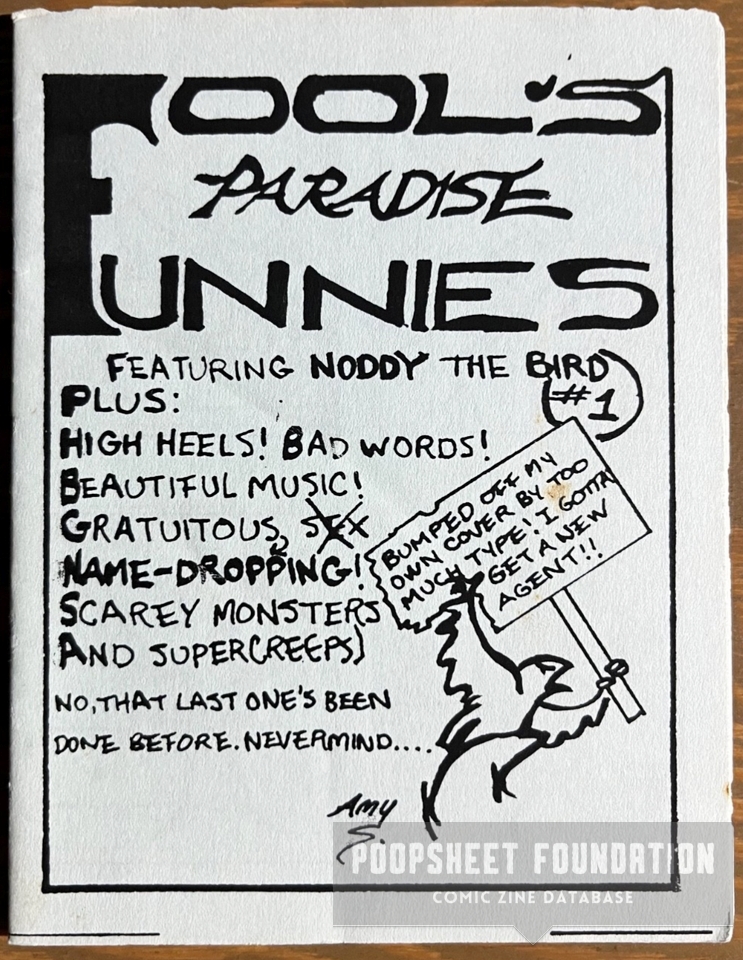 FOOL'S
PARADISE
FUNNIES
FEATURING NODDY THE BIRD
#1
PLUS:
HIGH HEELS! BAD WORDS!
BEAUTIFUL MUSIC!
GRATUITOUS SEX
NAME-DROPPING!
SCAREY MONSTERS
AND SUPERCREEPS)
NO, THAT LAST ONE'S BEEN
DONE BEFORE. NEVERMIND....
BUMPED OFF MY
OWN COVER BY TOO
MUCH TYPE! I GOTTA
GET A NEW
AGENT!!
Amy
S.
POOPSHEET FOUNDATION
COMIC ZINE DATABASE